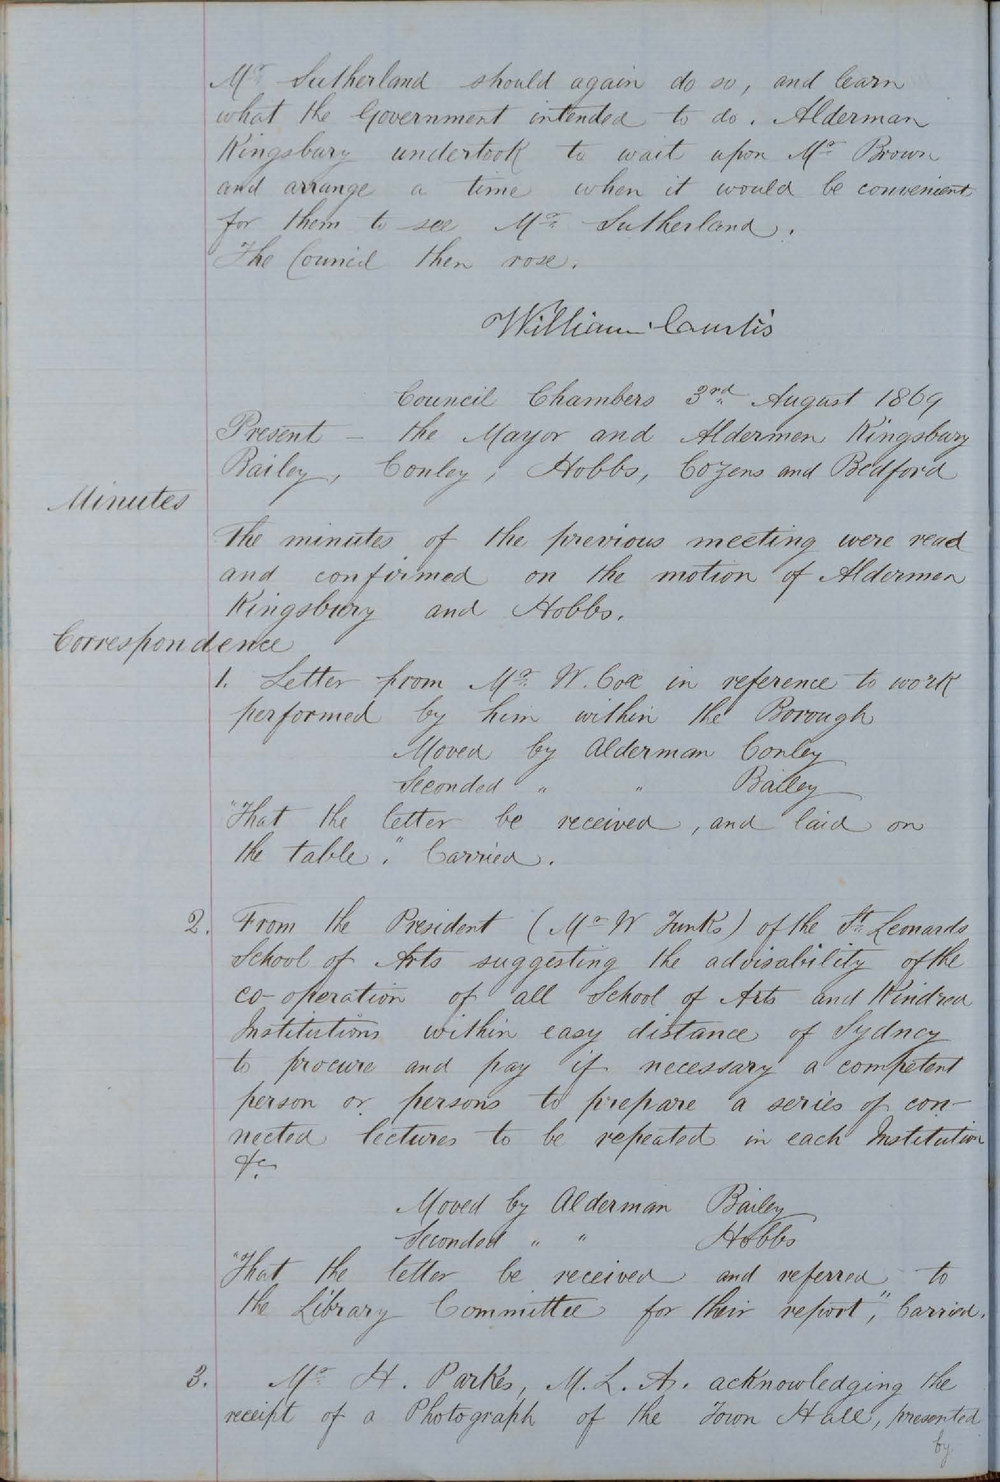 Mr. Sutherland should again do so, and learn
what the Government intended to do. Alderman
Kingsbury undertook to wait upon Mr. Brown
and arrange a time when it would be convenient
for them to see Mr. Sutherland.
The Council then rose.
William Curtis
Council Chambers 3rd. August 1869
Present - the Mayor and Aldermen Kingsbury
Bailey, Conley, Hobbs, Cozens and Bedford
Minutes
The minutes of the previous meeting were read
and confirmed on the motion of Aldermen
Kingsbury and Hobbs.
Correspondence
1. Letter from Mr. W. Coe in reference to work
performed by him within the Borough
Moved by Alderman Conley
Seconded " " Bailey
"That the letter be received, and laid on
the table." Carried.
2. From the President (Mr W Tunks) of the St. Leonards
School of Arts suggesting the advisability of the
co-operation of all School of Arts and Kindred
Institutions within easy distance of Sydney
to procure and pay if necessary a competent
person or persons to prepare a series of con-
nected lectures to be repeated in each Institution
&c.
Moved by Alderman Bailey
Seconded " " Hobbs
"That the letter be received and referred to
the Library Committee for their report," Carried.
3. Mr. H. Parkes, M.L.A. acknowledging the
receipt of a Photograph of the Town Hall, presented
by